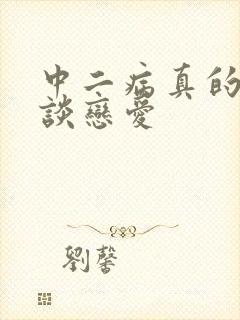 中二病真的
談戀愛
劉馨